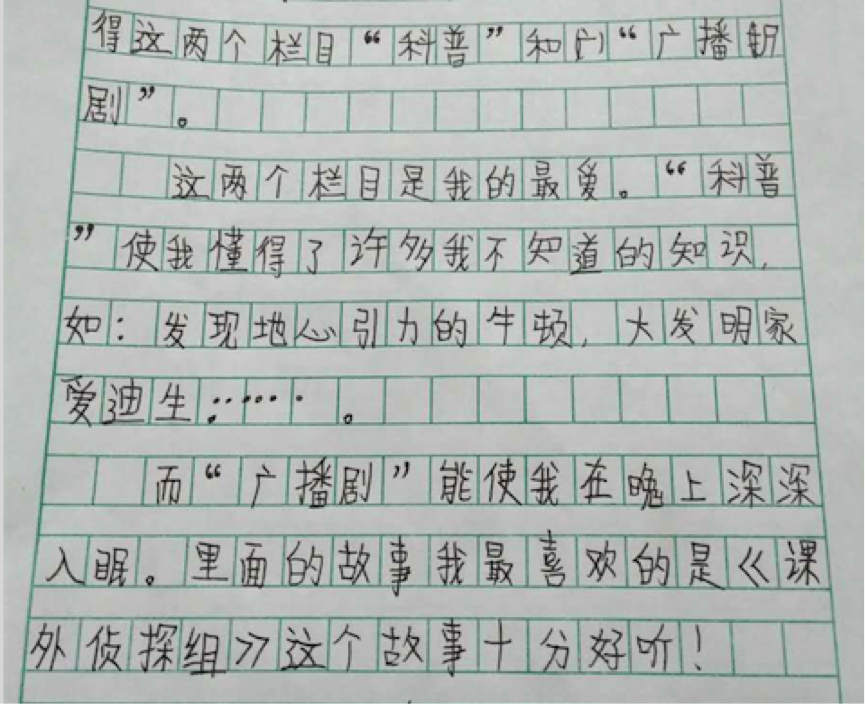 得这两个栏目“科普”和“广播
剧”。
这两个栏目是我的最爱。“科普
”使我懂得了许多我不知道的知识，
如：发现地心引力的牛顿，大发明家
爱迪生：……。
而“广播剧”能使我在晚上深深
入眠。里面的故事我最喜欢的是《课
外侦探组》这个故事十分好听！